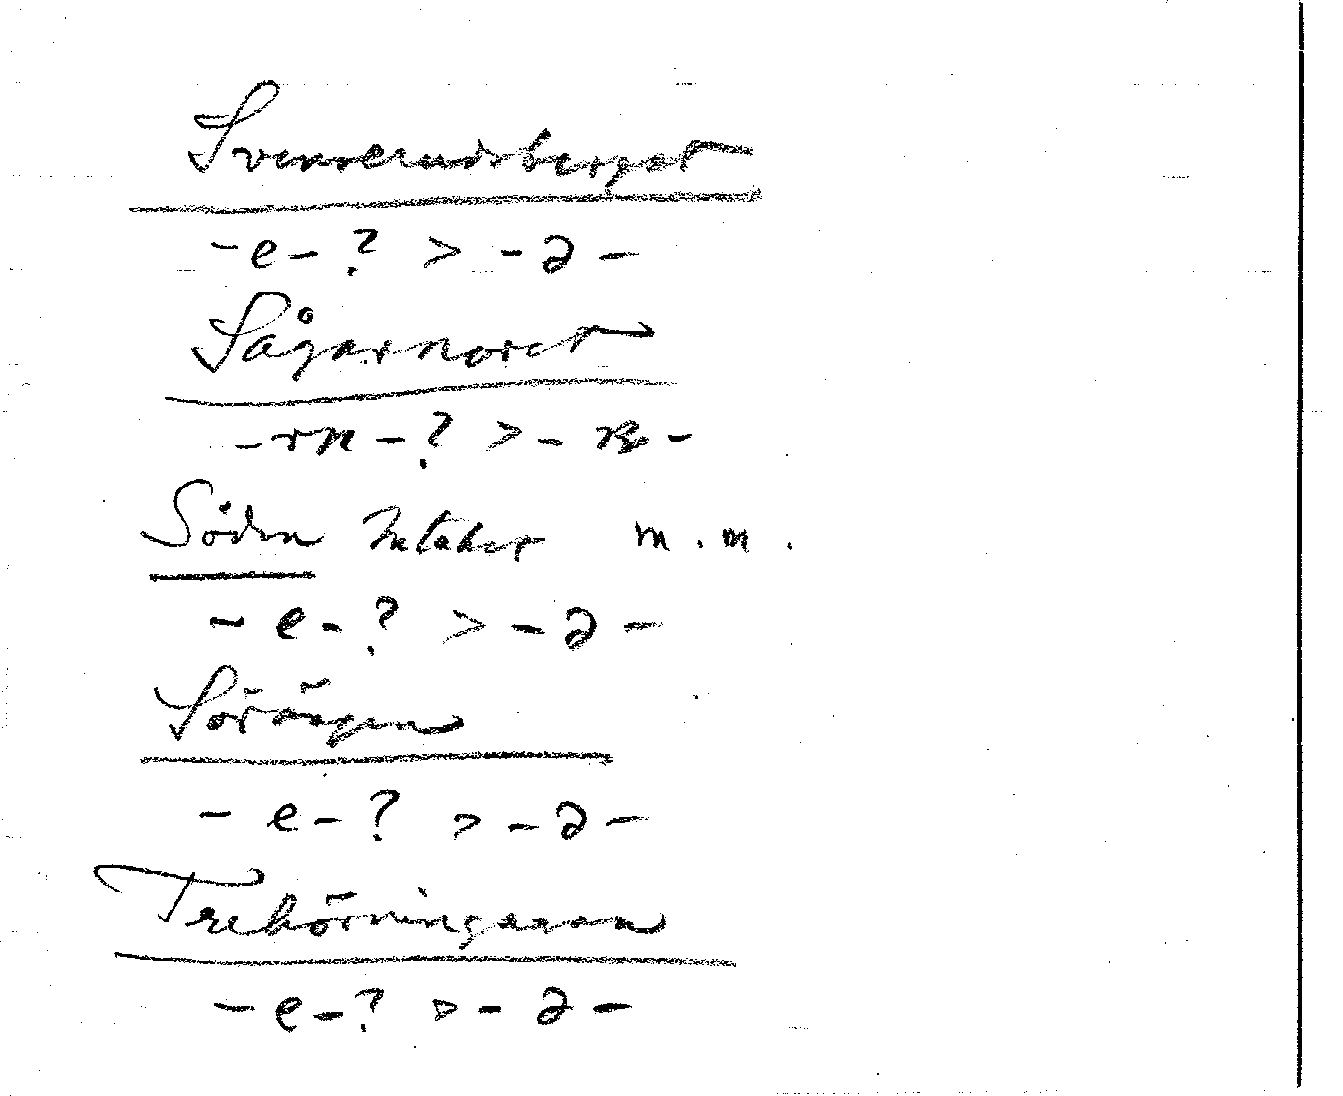 Svensrudsberget
- e - ? > - ə -
Sågarnoret
- rn - ? > - ɳ -
Södra Intaket m.m.
- e - ? > - ə -
Sörängen
- e - ? > - ə -
Trehörningarna
- e - ? > - ə -